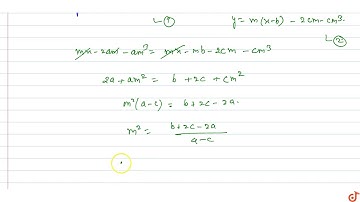 y = m(x-b) - 2cm - cm³.
L ①
L ②
mx - 2am - am³ = mx - mb - 2cm - cm³
2a + am² = b + 2c + cm²
m²(a-c) = b + 2c - 2a.
m² = (b+2c-2a)/(a-c)
doubtnut